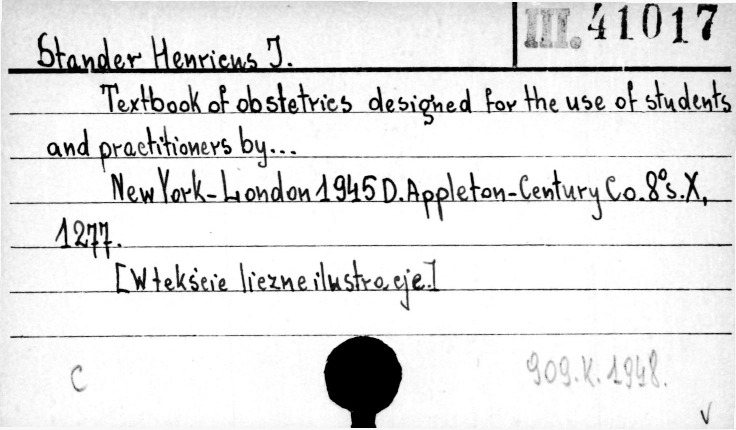 III. 41017
Stander Henricus J.
Textbook of obstetrics designed for the use of students
and practitioners by...
New York-London 1945 D. Appleton-Century Co. 8° s. X,
1277.
[W tekście liczne ilustracje.]
C
909.K.1948.
v